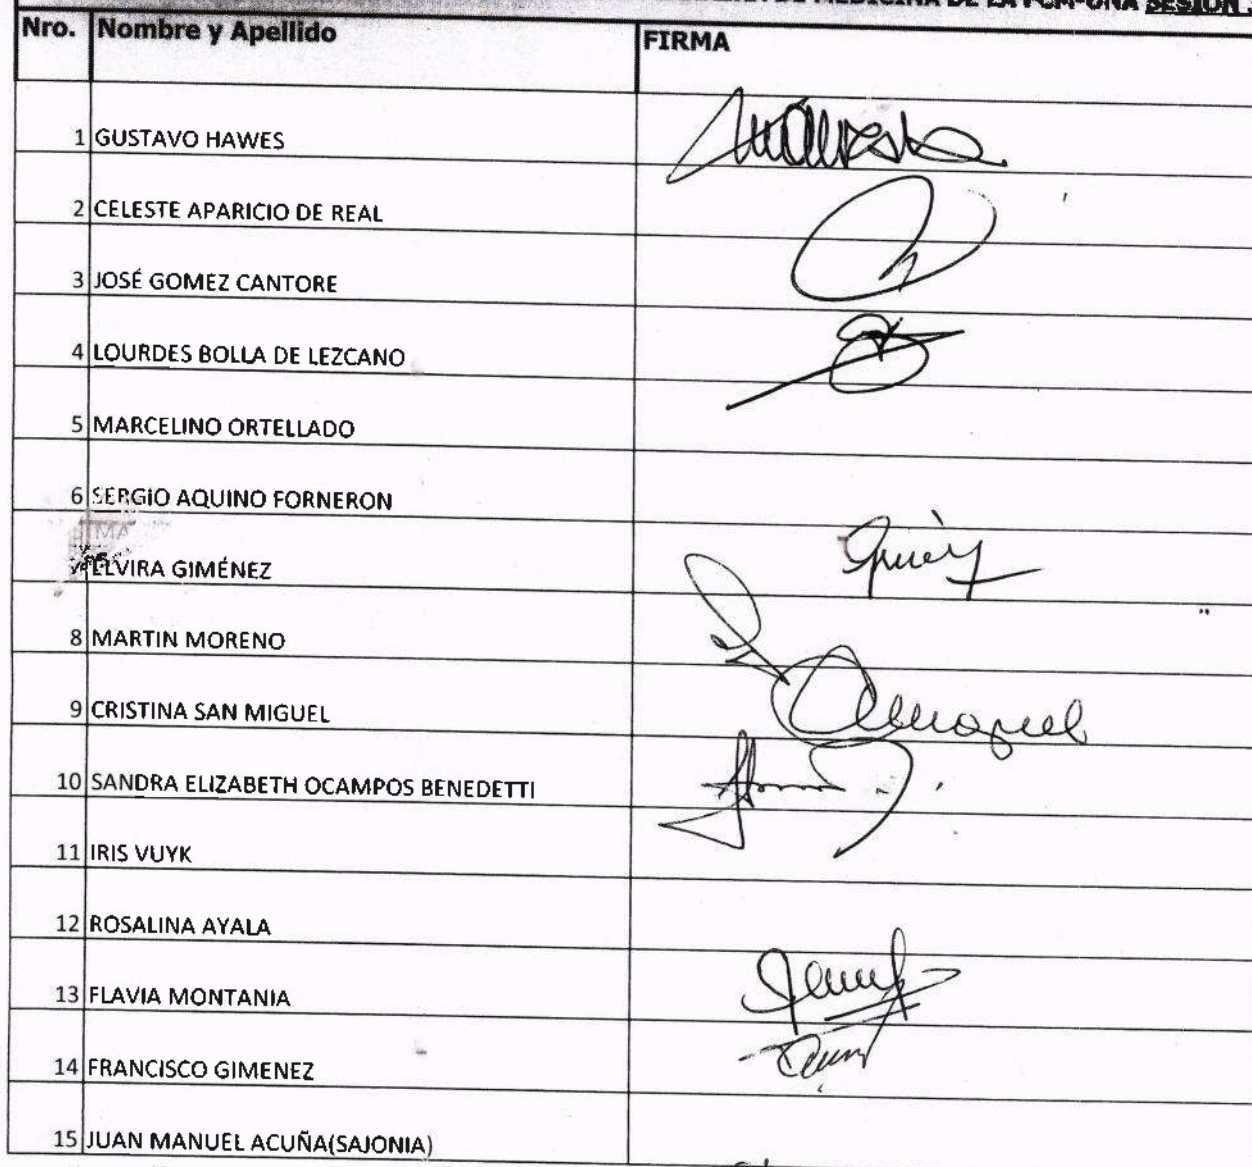 MEDICINA DE LA FCM-UNA SESION
Nro. Nombre y Apellido FIRMA
1 GUSTAVO HAWES
2 CELESTE APARICIO DE REAL
3 JOSÉ GOMEZ CANTORE
4 LOURDES BOLLA DE LEZCANO
5 MARCELINO ORTELLADO
6 SERGIO AQUINO FORNERON
ELVIRA GIMÉNEZ
8 MARTIN MORENO
9 CRISTINA SAN MIGUEL
10 SANDRA ELIZABETH OCAMPOS BENEDETTI
11 IRIS VUYK
12 ROSALINA AYALA
13 FLAVIA MONTANIA
14 FRANCISCO GIMENEZ
15 JUAN MANUEL ACUÑA(SAJONIA)